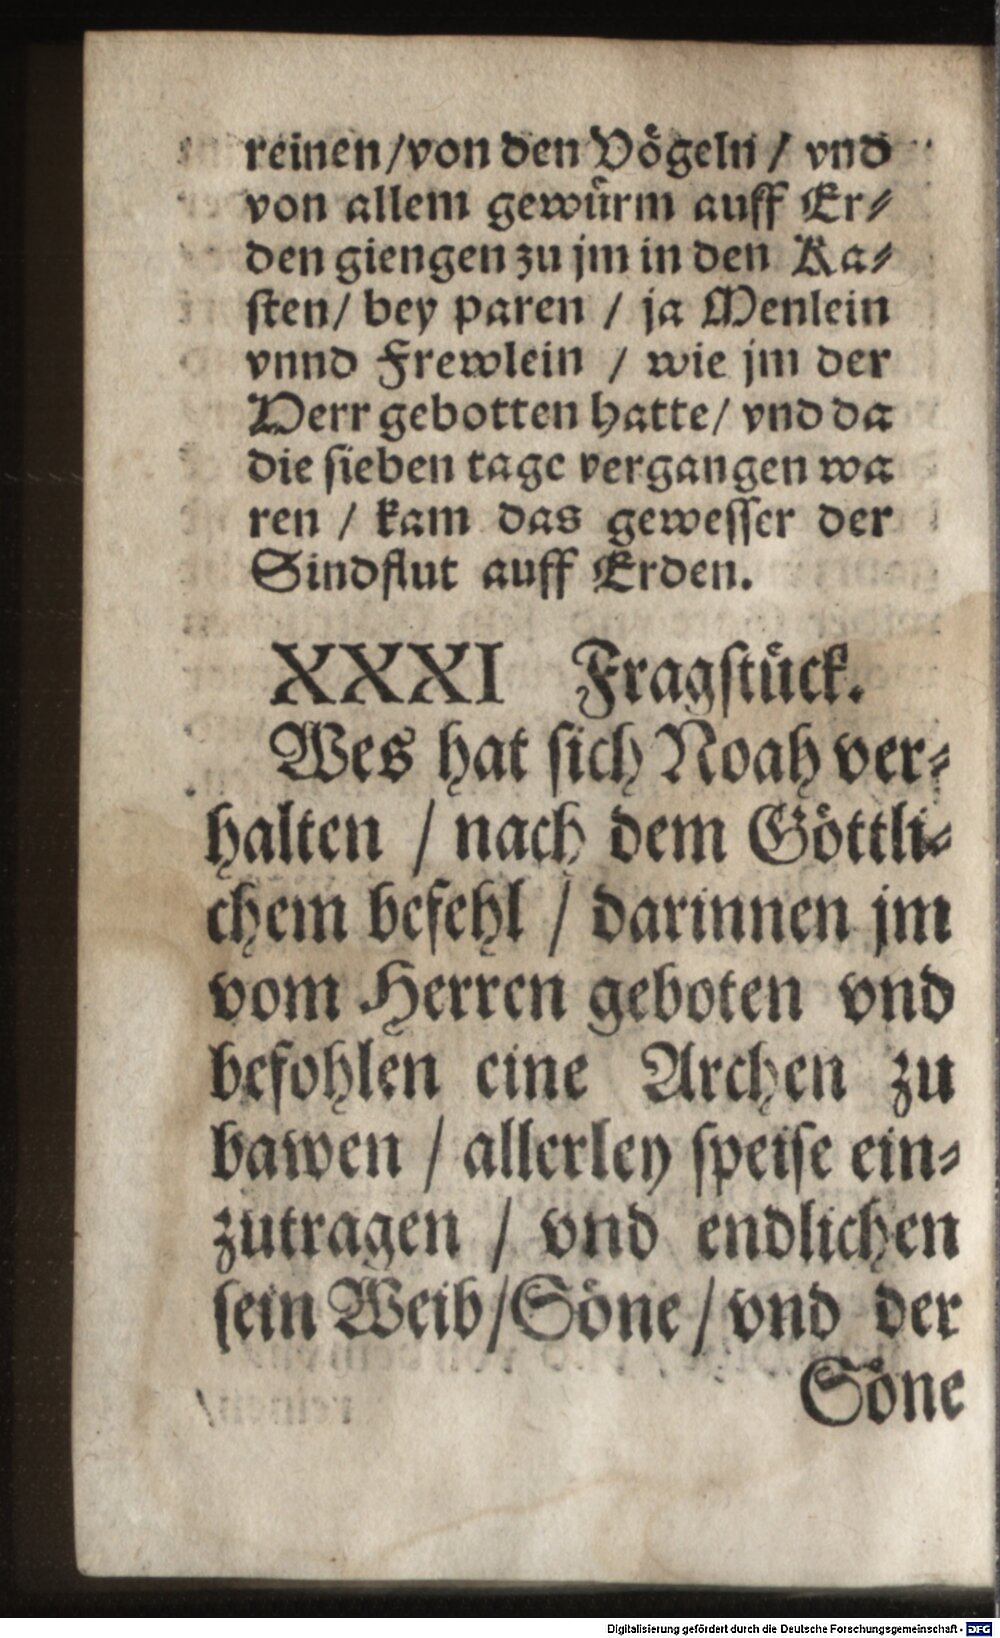 reinen/von den Vögeln / vnd
von allem gewürm auff Er⸗
den giengen zu jm in den Ka⸗
sten/ bey paren / ja Menlein
vnnd Frewlein / wie jm der
Herr gebotten hatte/ vnd da
die sieben tage vergangen wa
ren / kam das gewesser der
Sindflut auff Erden.
XXXI Fragstück.
Wes hat sich Noah ver⸗
halten / nach dem Göttli⸗
chem befehl / darinnen jm
vom Herren geboten vnd
befohlen eine Archen zu
bawen / allerley speise ein⸗
zutragen / vnd endlichen
sein Weib/Söne / vnd der
Söne
Digitalisierung gefördert durch die Deutsche Forschungsgemeinschaft - DFG